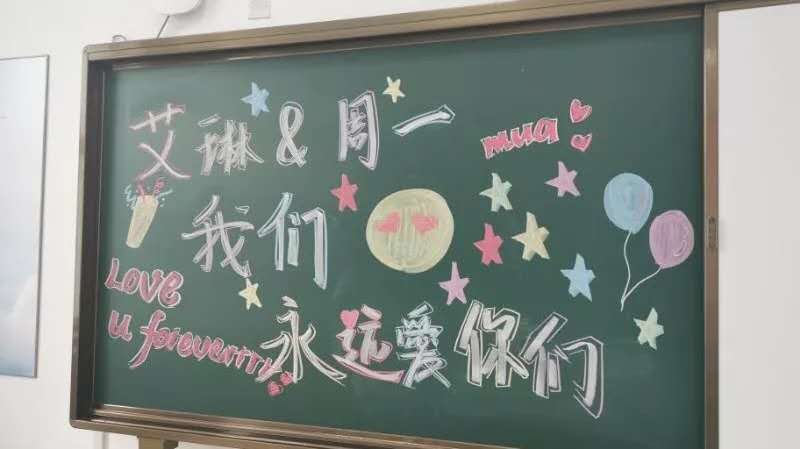 艾琳&周一
mua
我们
Love
u foreverrrr
永远爱你们